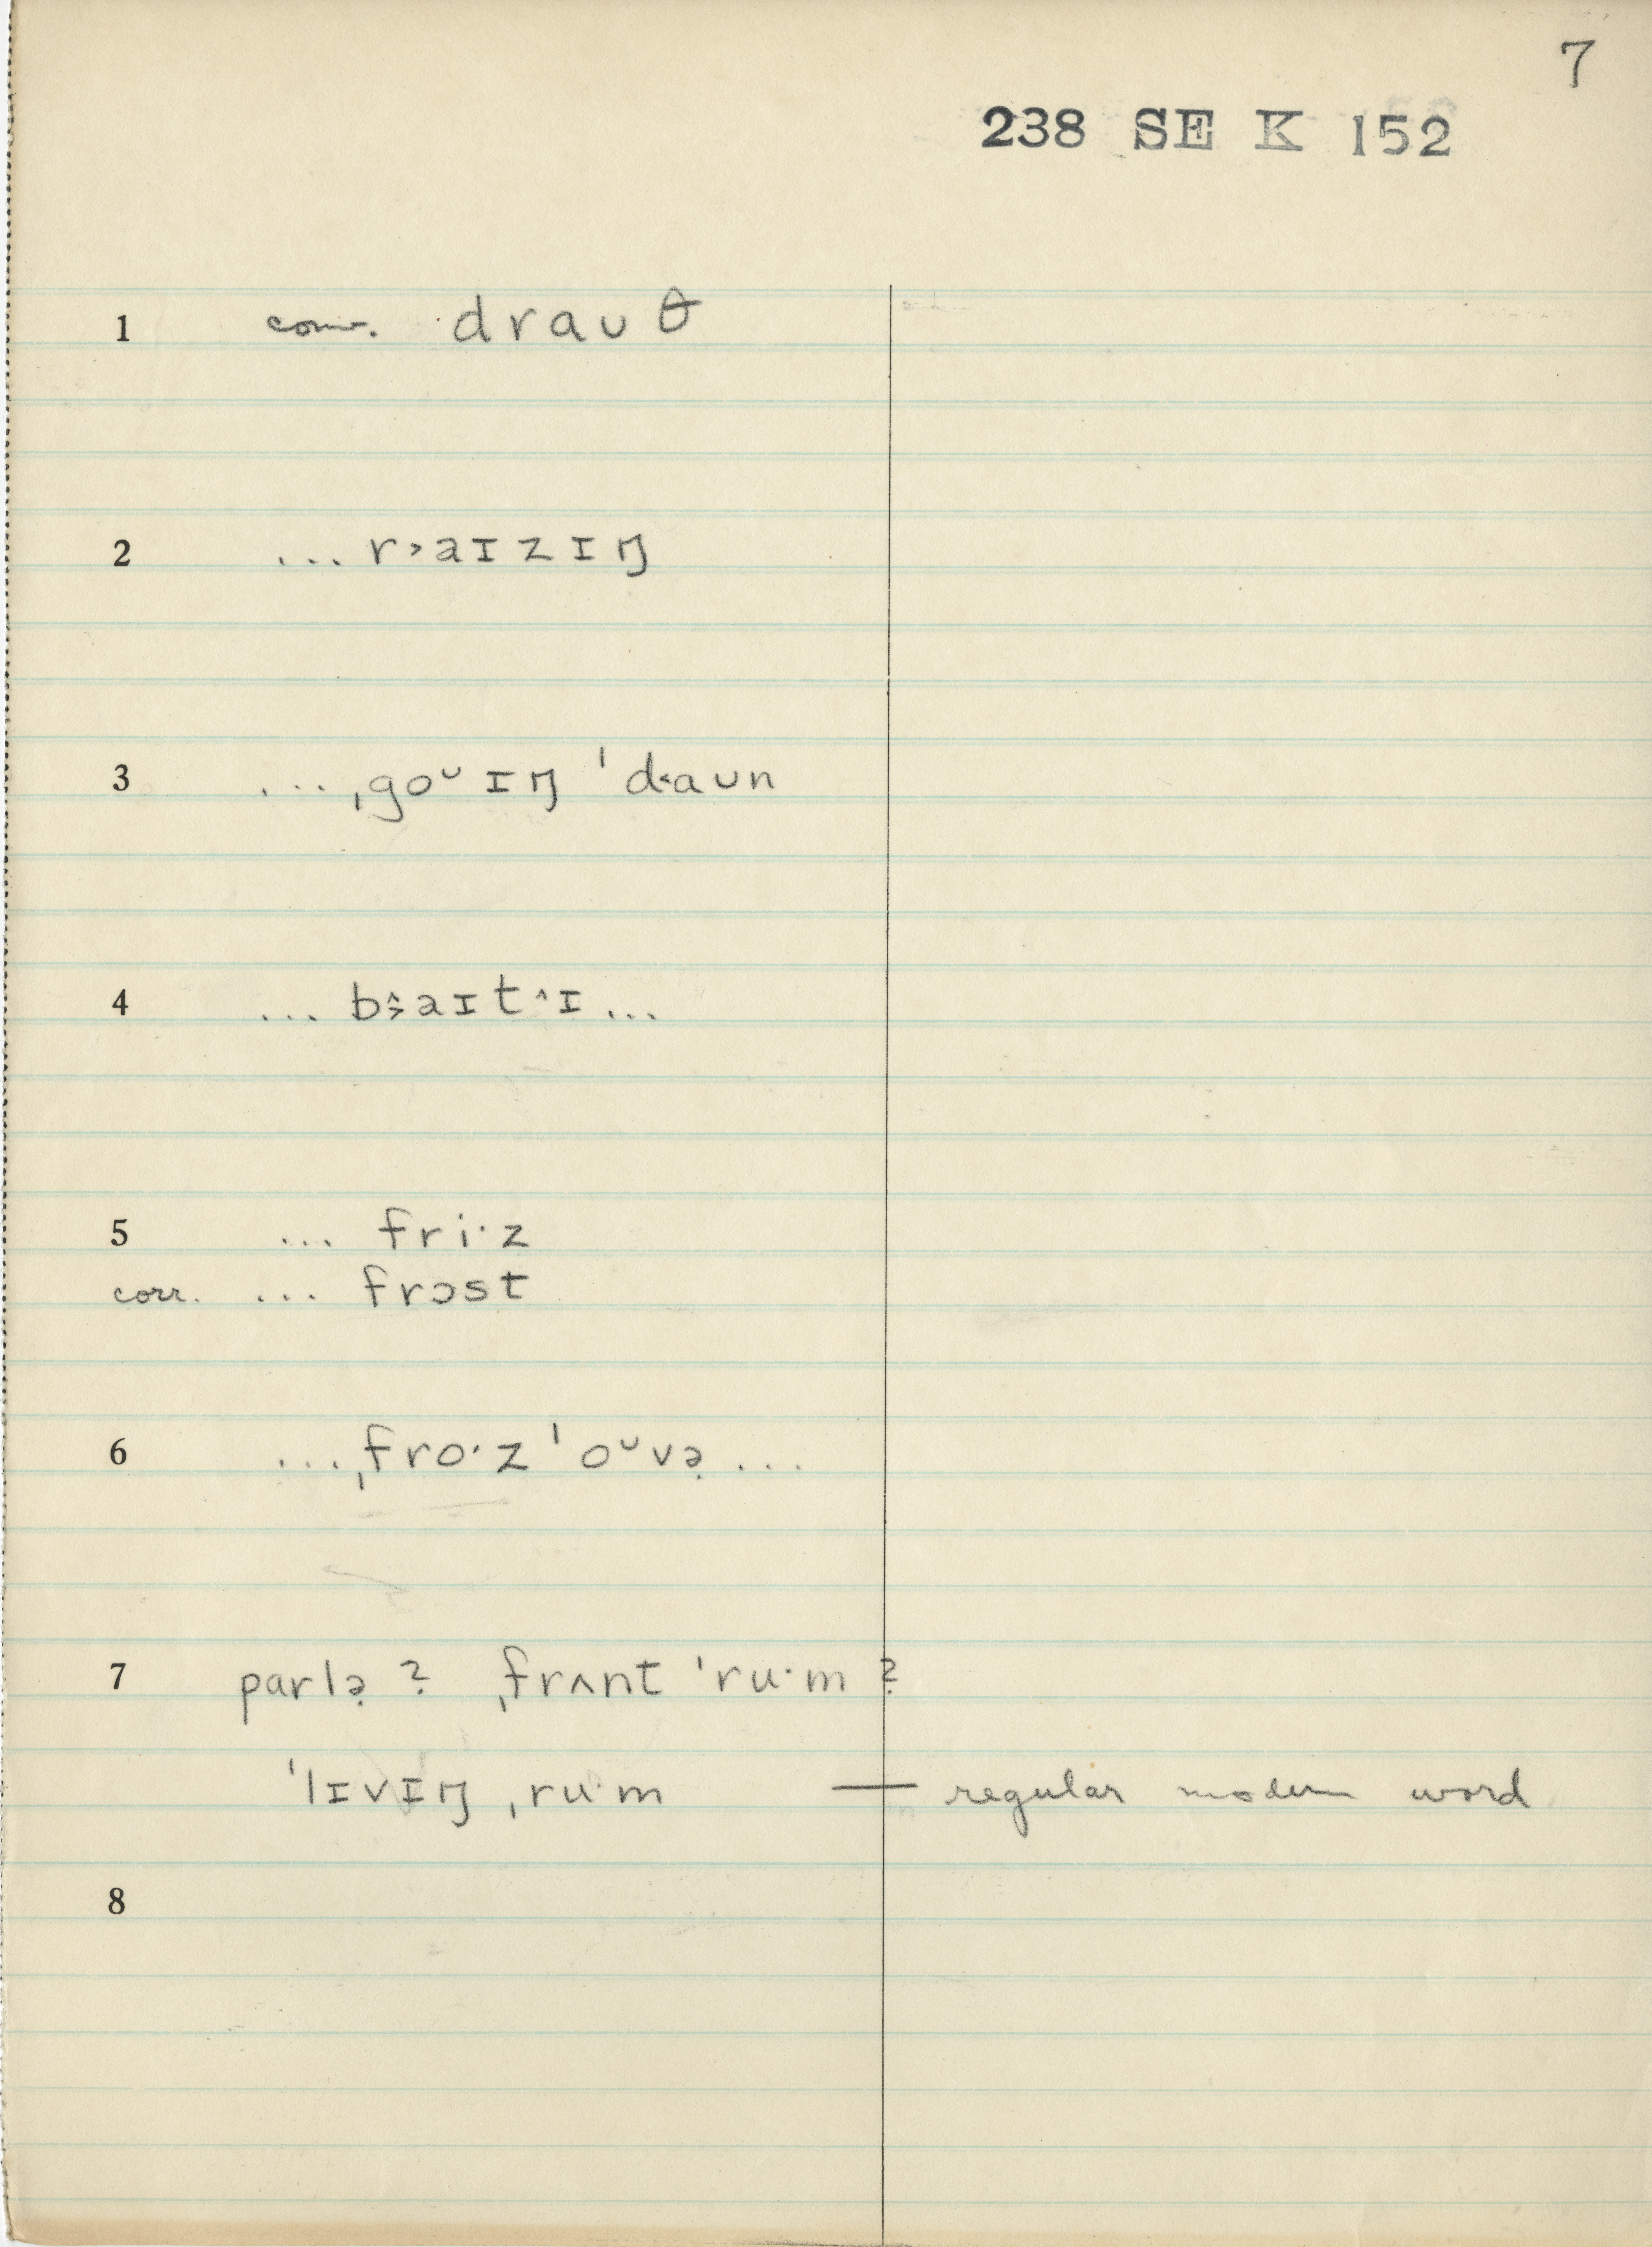 7
238 SE K 152
1 conv. draʊθ
2 ... r˃aɪzɪŋ
3 ... ˌgoᶷɪŋ ˈd˂aʊn
4 ... b˃̂aɪt^ɪ ...
5 ... fri·z
corr. ... frɔst
6 ... ˌfro·z ˈoᶷvə̣ ...
7 parlə̣ ? ˌfrʌnt ˈru·m ?
ˈlɪvɪŋ ˌru·m — regular modern word
8